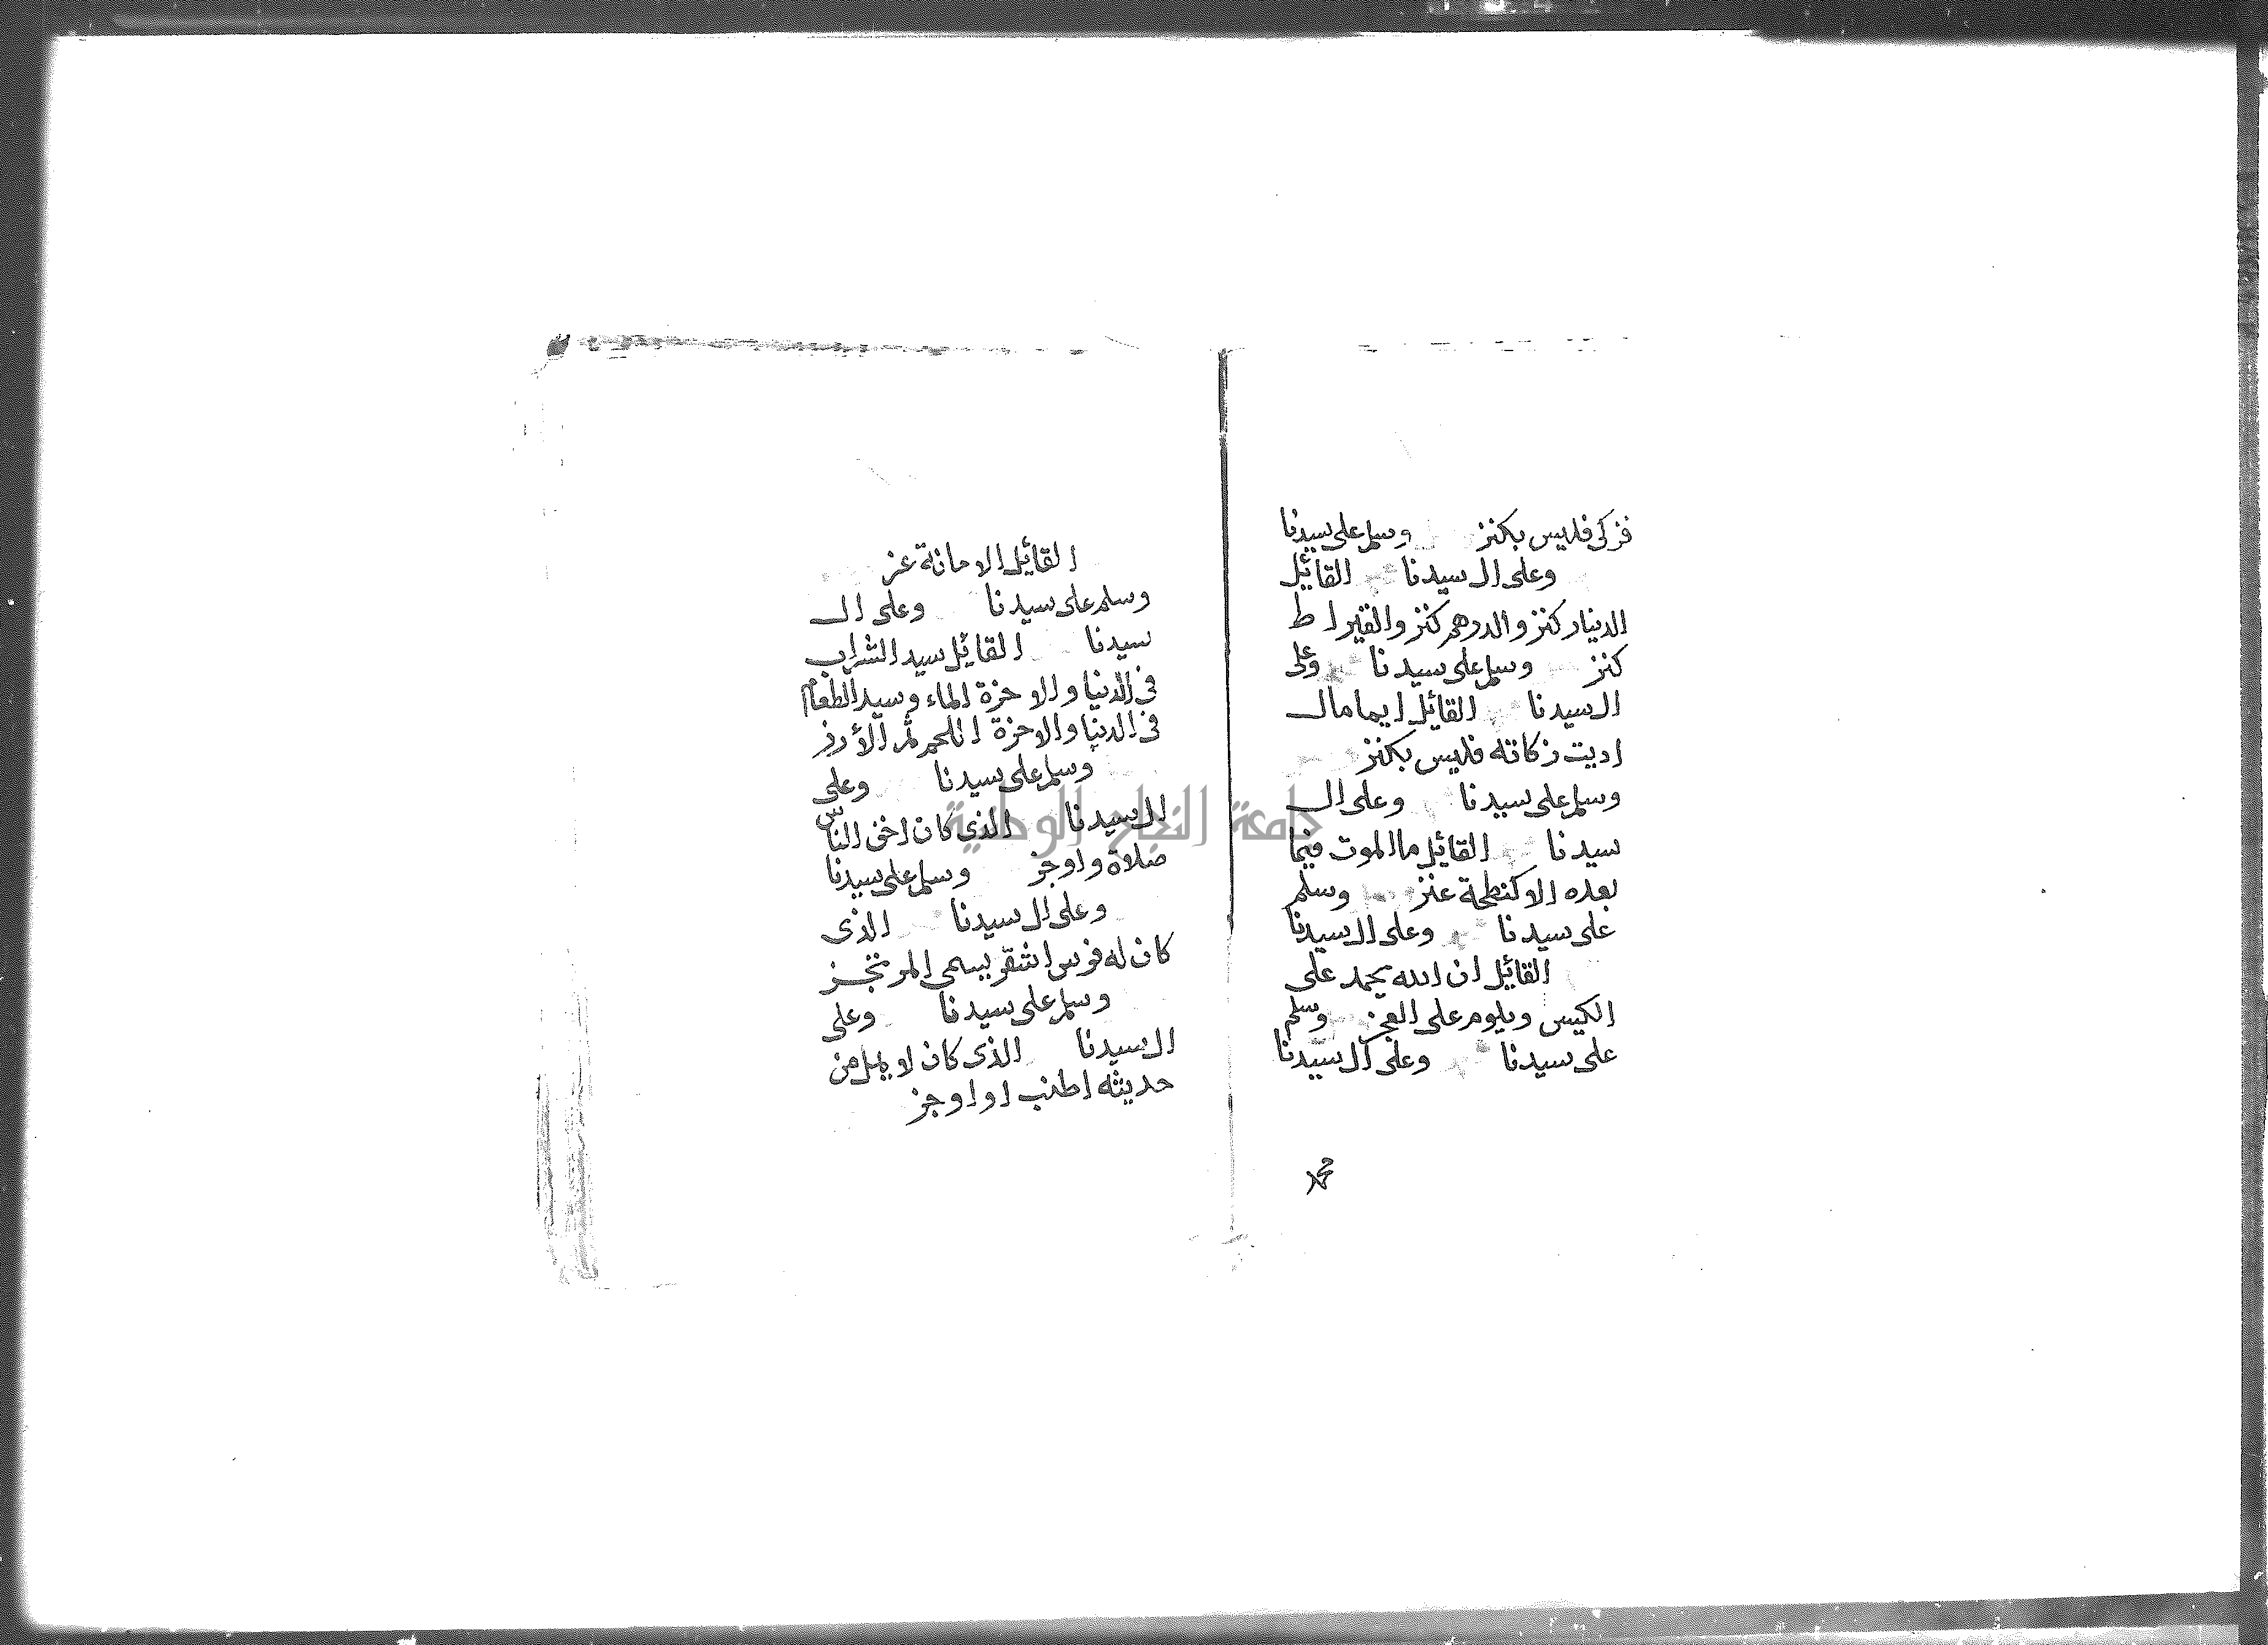 فزكى فليس بكنز وسلم على سيدنا
وعلى ال سيدنا القائل
الدينار كنز والدرهم كنز والقيراط
كنز وسلم على سيدنا وعلى
ال سيدنا القائل ايما مال
اديت زكاته فليس بكنز
وسلم على سيدنا وعلى ال
سيدنا القائل ما الموت فيما
بعده الا كنطحة عنز وسلم
على سيدنا وعلى ال سيدنا
القائل ان الله يحمد على
الكيس ويلوم على العجز وسلم
على سيدنا وعلى ال سيدنا
محمد
القائل الامانة عز
وسلم على سيدنا وعلى ال
سيدنا القائل سيد الشراب
فى الدنيا والاخرة الماء وسيد الطعام
فى الدنيا والاخرة اللحم ثم الأرز
وسلم على سيدنا وعلى
ال سيدنا الذى كان اخف الناس
صلاة واوجز وسلم على سيدنا
وعلى ال سيدنا الذى
كان له فرس اشقر يسمى المرتجز
وسلم على سيدنا وعلى
ال سيدنا الذى كان لا يمل من
حديثه اطنب او اوجز
جامعة النجاح الوطنية